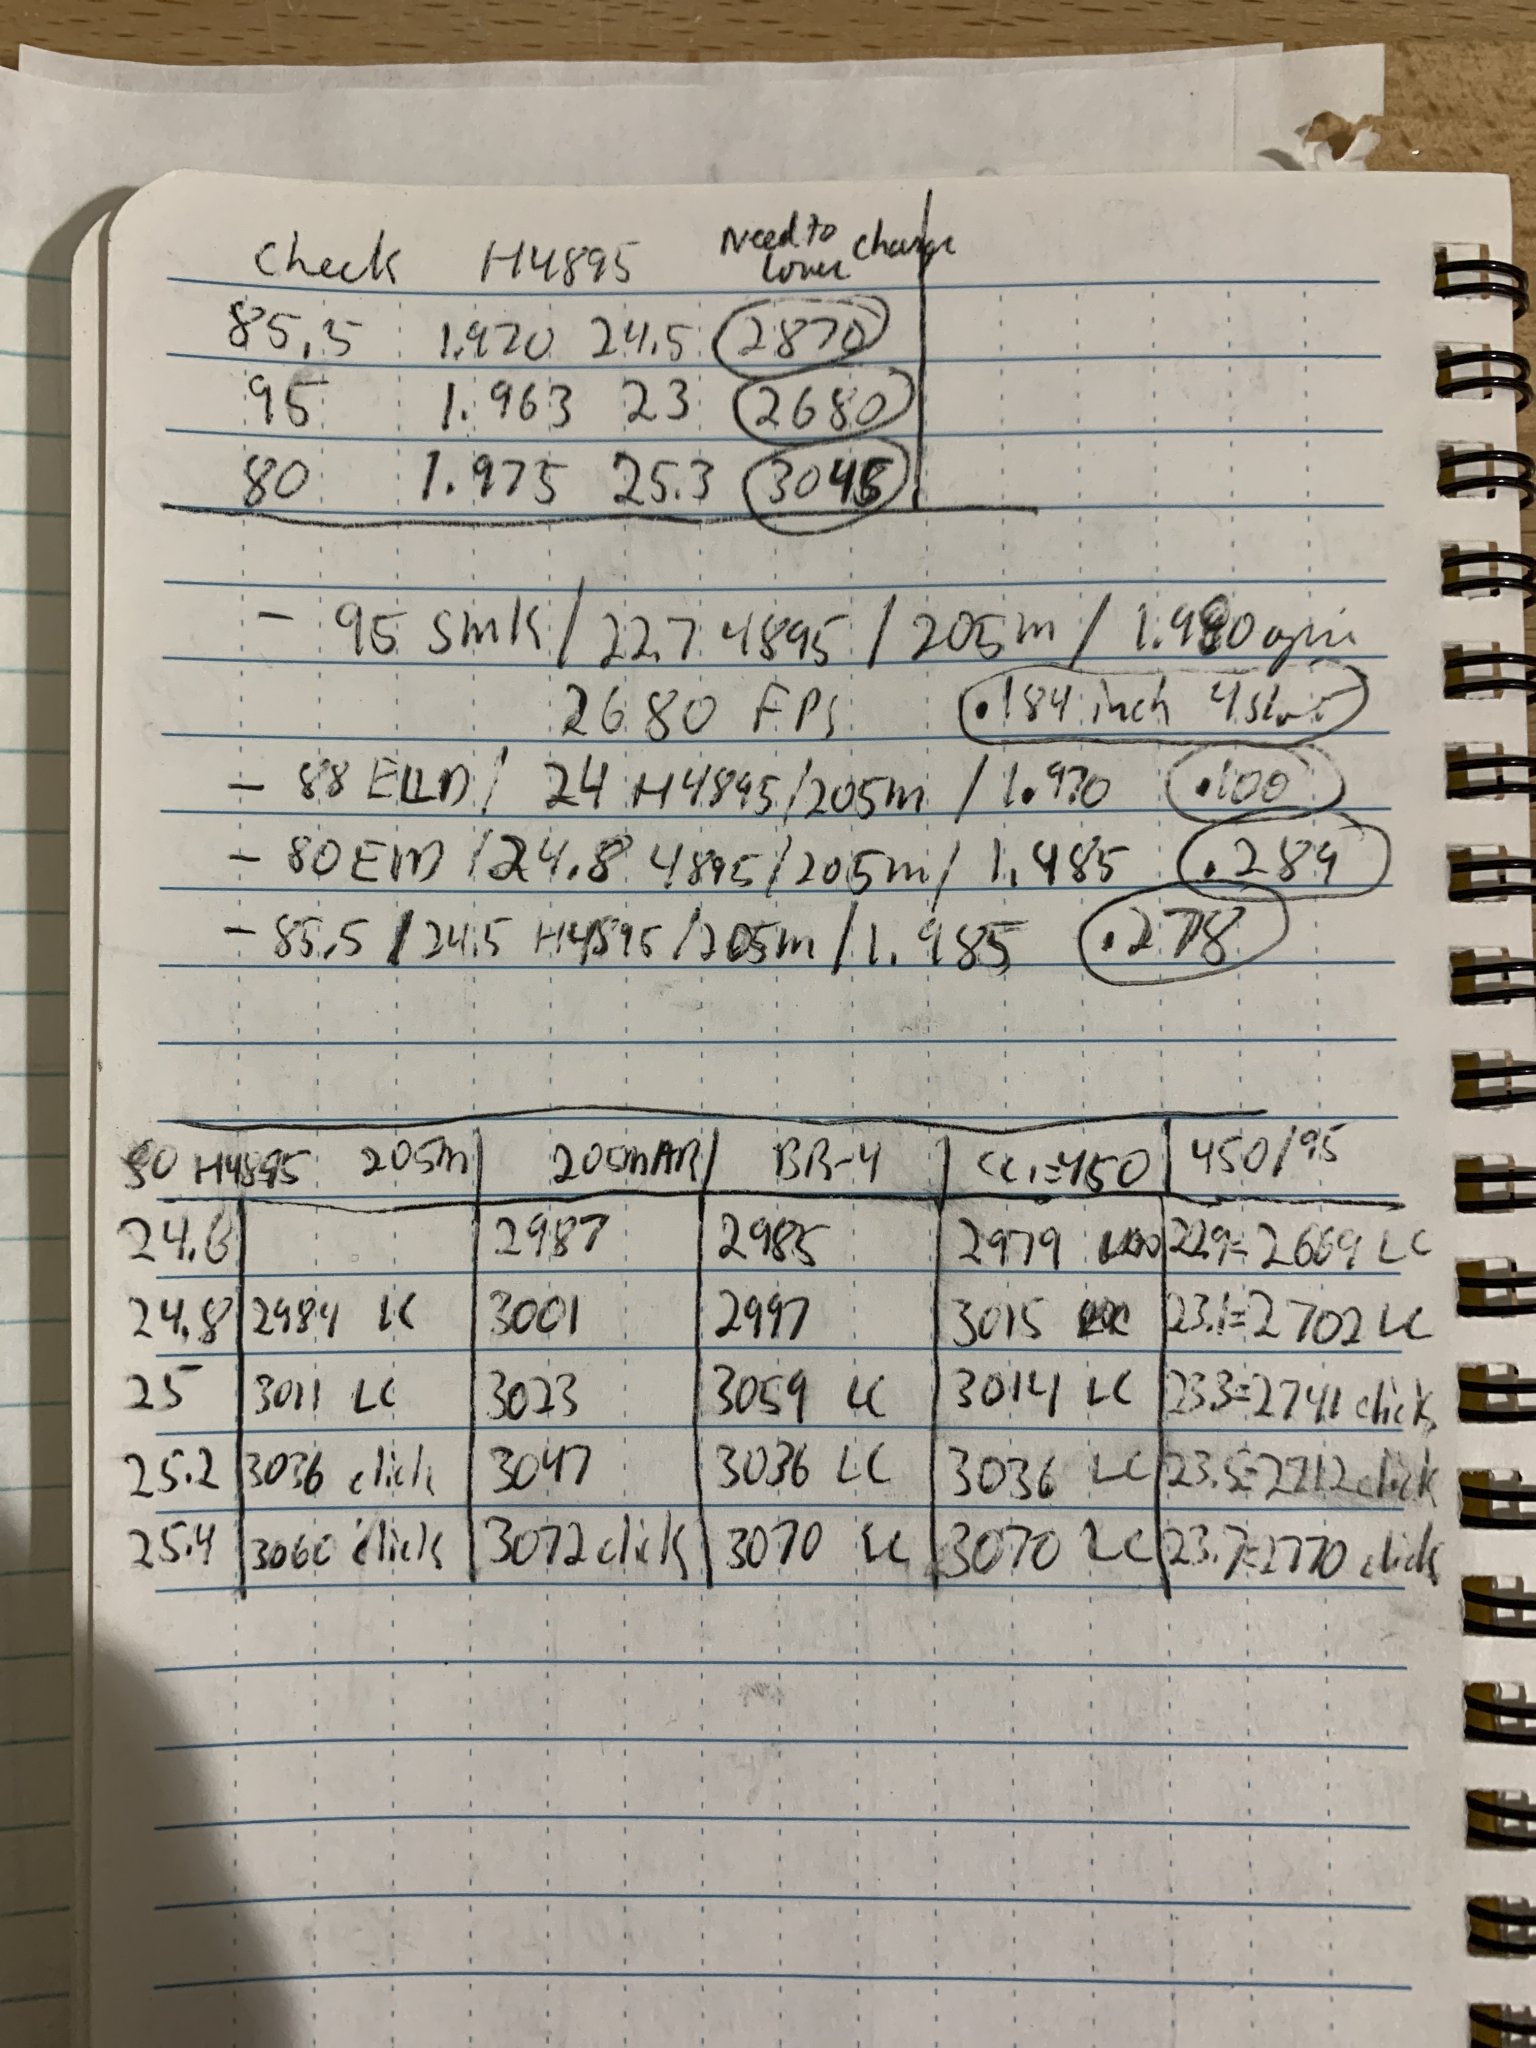 Check H4895 Need to lower charge
85.5 1.970 24.5 2870
95 1.963 23 2680
80 1.975 25.3 3045
- 95 SMK / 22.7 4895 / 205m / 1.980
2680 FPS .184 inch 4
- 88 ELD / 24 H4895 / 205m / 1.970 .100
- 80 ELD / 24.8 4895 / 205m / 1.485 .289
- 85.5 / 24.5 H4895 / 205m / 1.985 .278
80 H4895 205m 205mAR BR-4 CCI=450 450/95
24.6 2987 2985 2979 22.9=2669 LC
24.8 2984 LC 3001 2997 3015 23.1=2702 LC
25 3011 LC 3023 3059 LC 3014 LC 23.3=2741 click
25.2 3036 click 3047 3036 LC 3036 LC 23.5=2712 click
25.4 3060 click 3072 click 3070 LC 3070 LC 23.7=2770 click